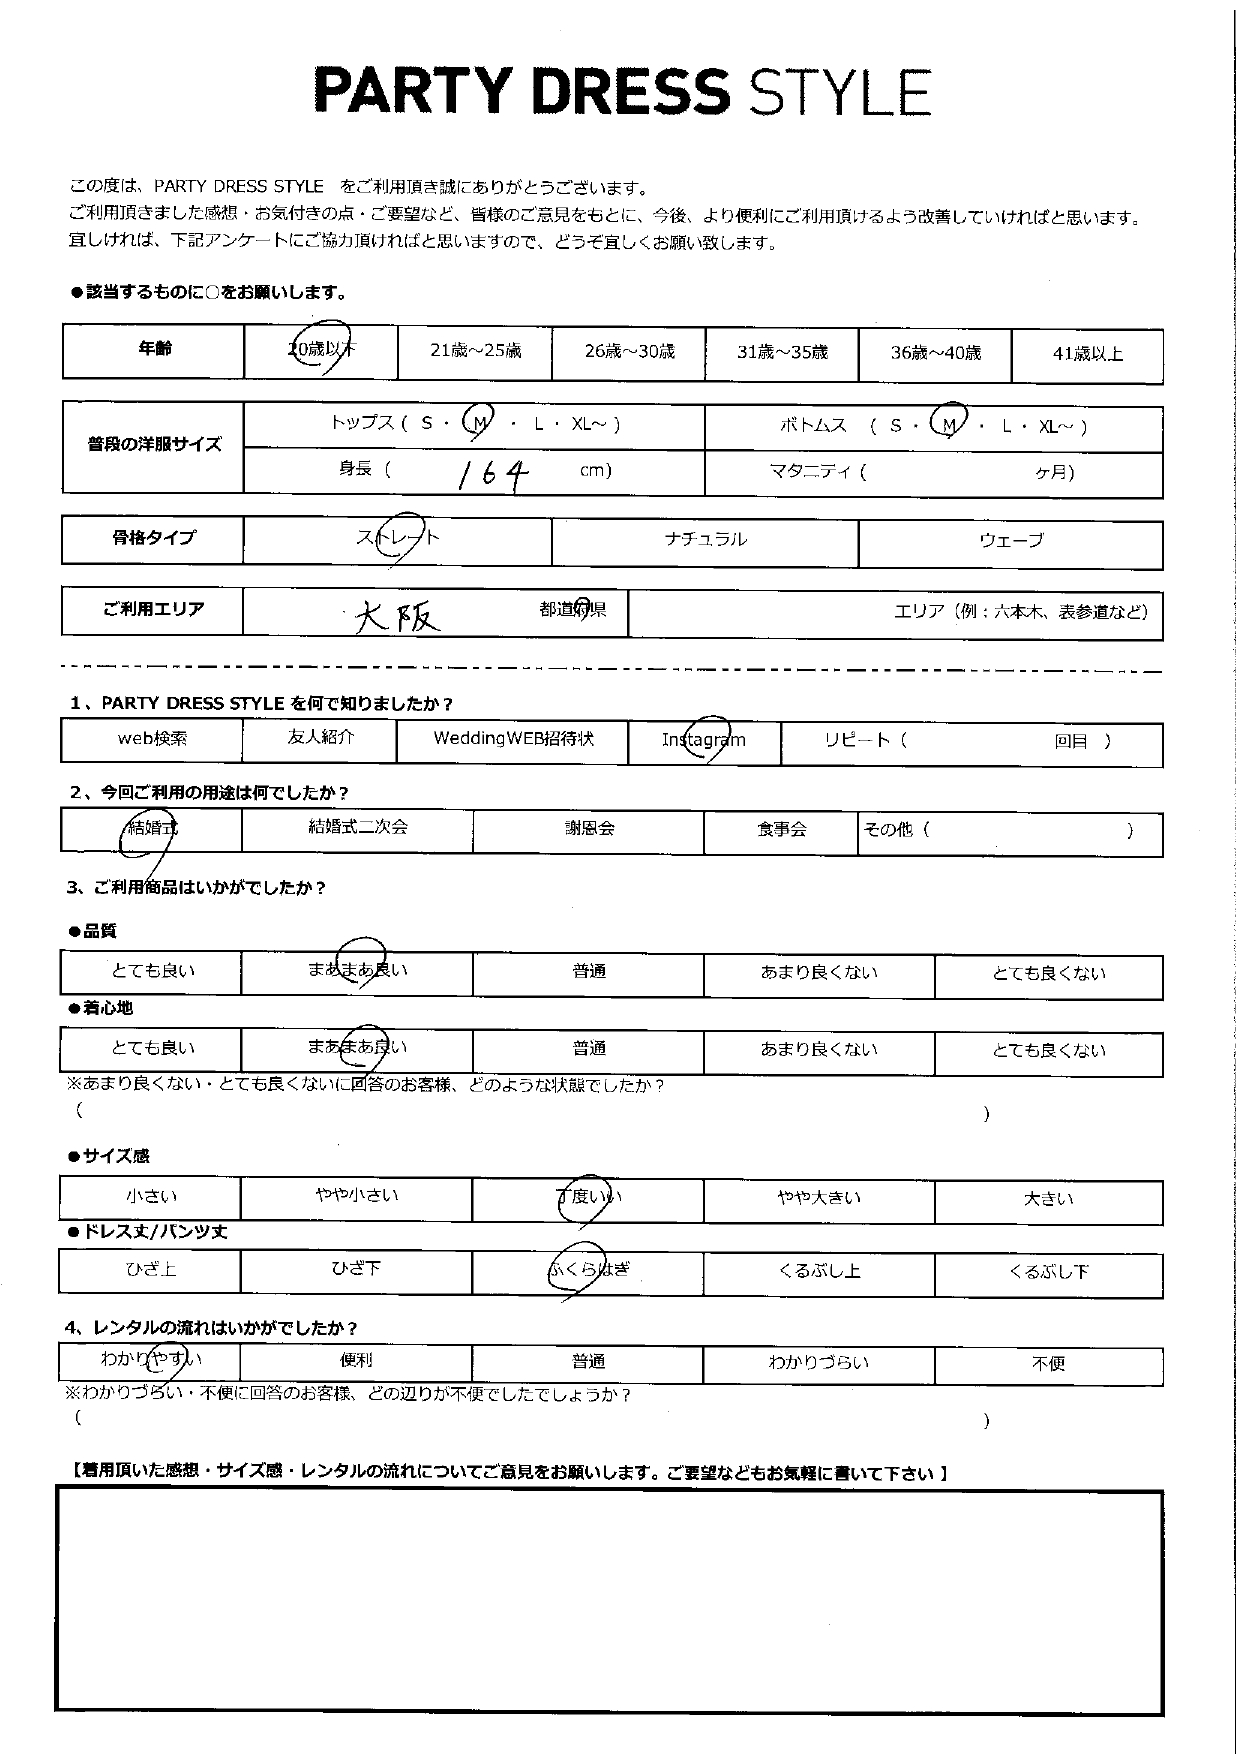 PARTY DRESS STYLE
この度は、PARTY DRESS STYLE をご利用頂き誠にありがとうございます。
ご利用頂きました感想・お気付きの点・ご要望など、皆様のご意見をもとに、今後、より便利にご利用頂けるよう改善していければと思います。
宜しければ、下記アンケートにご協力頂ければと思いますので、どうぞ宜しくお願い致します。
●該当するものに○をお願いします。
年齢 20歳以下 21歳～25歳 26歳～30歳 31歳～35歳 36歳～40歳 41歳以上
普段の洋服サイズ
トップス ( S ・ M ・ L ・ XL～ ) ボトムス ( S ・ M ・ L ・ XL～ )
身長 ( 164 cm) マタニティ ( ヶ月)
骨格タイプ ストレート ナチュラル ウェーブ
ご利用エリア 大阪 都道府県 エリア（例；六本木、表参道など）
1、PARTY DRESS STYLE を何で知りましたか？
web検索 友人紹介 WeddingWEB招待状 Instagram リピート（ 回目 ）
2、今回ご利用の用途は何でしたか？
結婚式 結婚式二次会 謝恩会 食事会 その他（ ）
3、ご利用商品はいかがでしたか？
●品質
とても良い まあまあ良い 普通 あまり良くない とても良くない
●着心地
とても良い まあまあ良い 普通 あまり良くない とても良くない
※あまり良くない・とても良くないに回答のお客様、どのような状態でしたか？
( )
●サイズ感
小さい やや小さい 丁度いい やや大きい 大きい
●ドレス丈/パンツ丈
ひざ上 ひざ下 ふくらはぎ くるぶし上 くるぶし下
4、レンタルの流れはいかがでしたか？
わかりやすい 便利 普通 わかりづらい 不便
※わかりづらい・不便に回答のお客様、どの辺りが不便でしたでしょうか？
( )
【着用頂いた感想・サイズ感・レンタルの流れについてご意見をお願いします。ご要望などもお気軽に書いて下さい 】